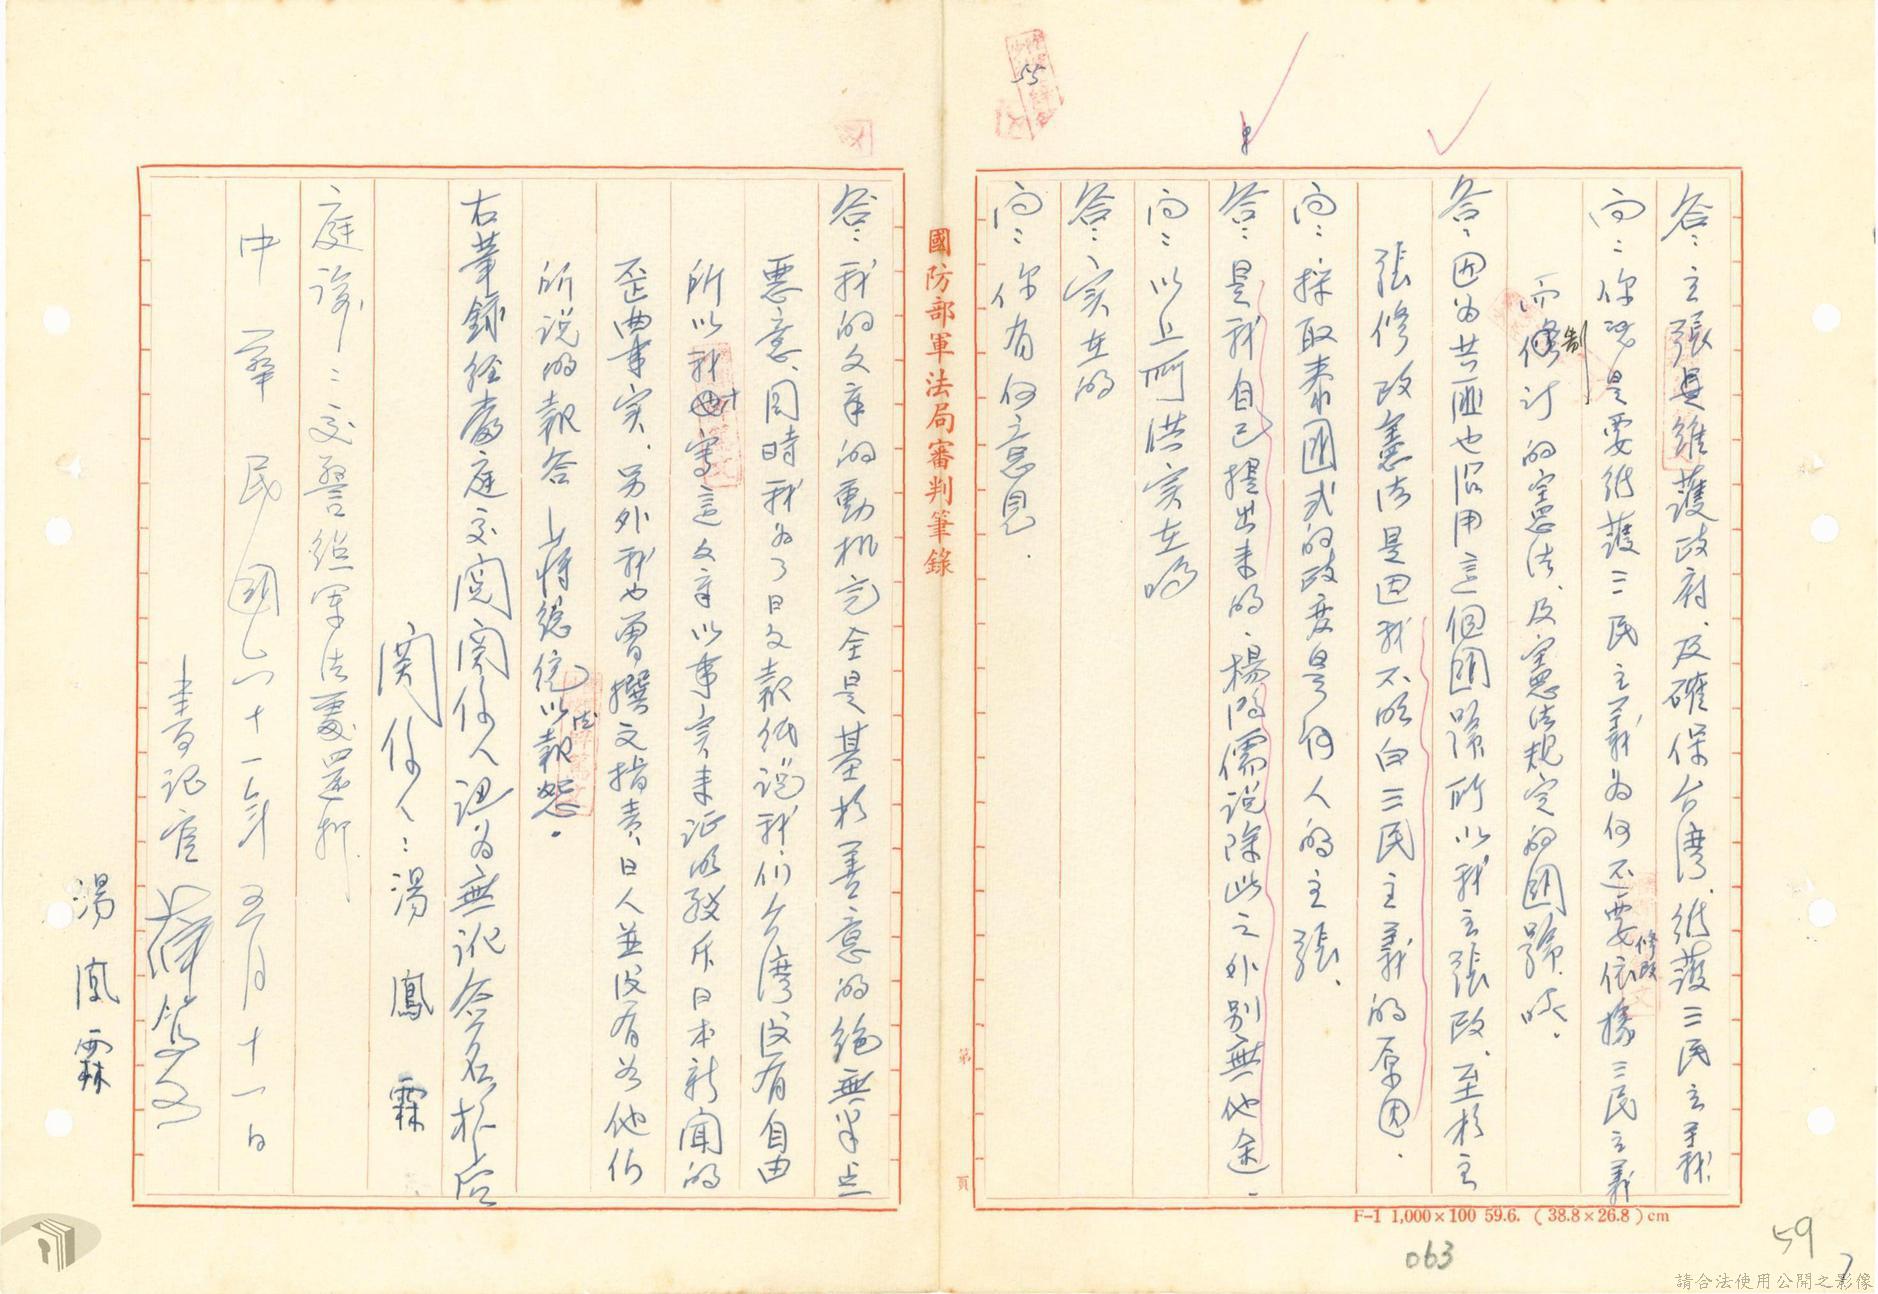 答:主張是維護政府、及確保台灣、維護三民主義
問:你既是要維護三民主義為何还要修改依據三民主義
而制訂的憲法、及憲法規定的國號呢。
答:因为共匪也沿用這個國號所以我主張改、至於主
張修改憲法是因我不明白三民主義的原因。
問:採取泰國式的政變是何人的主張、
答:是我自己提出来的、楊鴻儒説除此之外别無他途。
問:以上所供实在嗎
答:实在的
問:你有何意見.
國防部軍法局審判筆錄
第 頁
答:我的文章的動机完全是基於善意的絶無半点
惡意、同時我为了日文報紙説我们台湾没有自由
所以我才寫這文章以事实来証明駁斥日本新聞的
歪曲事实、另外我也曾撰文指責、日人並没有为他们
所説的報答 蔣總統以德報怨。
右筆録經當庭交閱関係人認为無訛簽名於后
関係人:湯鳳霖
庭諭:交警組軍法處還押
中華民國六十一年五月十一日
書記官
湯鳳霖
F-1 1,000×100 59.6. (38.8×26.8)cm
063
59
55
請合法使用公開之影像